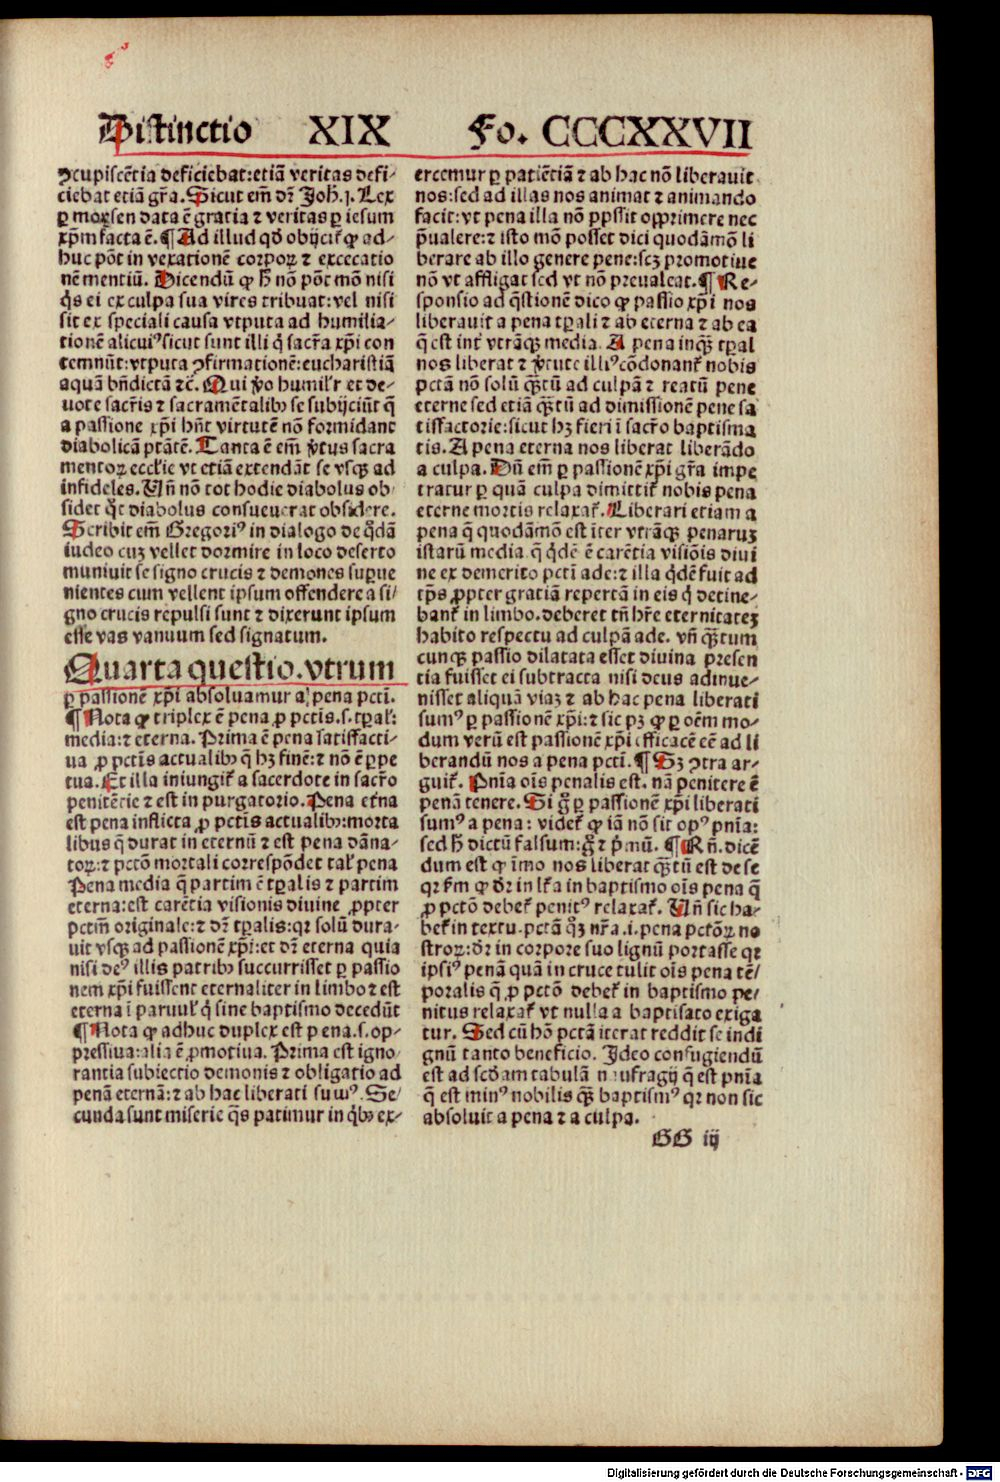 Distinctio XIX Fo. CCCXXVII
ꝯcupiscẽtia deficiebat:etiã veritas defi-
ciebat etiã gr̃a. Sicut em̃ dr̃ Joh̃.j. Lex
ꝑ moysen data ẽ gratia ⁊ veritas ꝑ iesum
xp̃m facta ẽ. ¶ Ad illud qđ obijcit̃ ꝙ ad-
huc põt in vexationẽ corpoꝝ ⁊ excecatio
nẽ mentiũ. Dicendũ ꝙ h̃ nõ põt mõ nisi
q̃s ei ex culpa sua vires tribuat:vel nisi
sit ex speciali causa vtputa ad humilia-
tionẽ alicuiꝰ sicut sunt illi q̃ sacr̃a xp̃i con
temnũt:vtputa ꝯfirmationẽ:eucharistiã
aquã bñdictã ⁊c̃. Qui ṽo humilr̃ et de-
uote sacr̃is ⁊ sacramẽtalibꝫ se subijciũt q̃
a passione xp̃i hñt virtutẽ nõ formidant
diabolicã ptãtẽ. Tanta ẽ em̃ ṽtus sacra
mentoꝝ eccl̃ie vt etiã extendãt se vsqꝫ ad
infideles. Vñ nõ tot hodie diabolus ob-
sidet q̃t diabolus consueuerat obsidere.
Scribit em̃ Gregoriꝰ in dialogo de q̃dã
iudeo cuꝫ vellet dormire in loco deserto
muniuit se signo crucis ⁊ demones suꝑue
nientes cum vellent ipsum offendere a si-
gno crucis repulsi sunt ⁊ dixerunt ipsum
esse vas vanuum sed signatum.
Quarta questio.vtrum
ꝑ passionẽ xp̃i absoluamur a pena pctĩ.
¶ Nota ꝙ triplex ẽ pena ꝓ pctis.s.tꝑal̃:
media:⁊ eterna. Prima ẽ pena satisfacti-
ua ꝓ pctĩs actualibꝫ q̃ hꝫ finẽ:⁊ nõ ẽ ꝑpe
tua. Et illa iniungit̃ a sacerdote in sacr̃o
penitẽtie ⁊ est in purgatorio. Pena et̃na
est pena inflicta ꝓ pctĩs actualibꝫ:morta
libus q̃ durat in eternũ ⁊ est pena dãna-
toꝝ:⁊ pctõ mortali correspõdet tal̃ pena
Pena media q̃ partim ẽ tꝑalis ⁊ partim
eterna:est carẽtia visionis diuine ꝓpter
pctm̃ originale:⁊ dr̃ tꝑalis:qꝛ solũ dura-
uit vsqꝫ ad passionẽ xp̃i:et dr̃ eterna quia
nisi deꝰ illis patribꝫ succurrisset ꝑ passio
nem xp̃i fuissent eternaliter in limbo ⁊ est
eterna ĩ paruul̃ q̃ sine baptismo decedũt
¶ Nota ꝙ adhuc duplex est pena.s.op-
pressiua:alia ẽ ꝓmotiua. Prima est igno
rantia subiectio demonis ⁊ obligatio ad
penã eternã:⁊ ab hac liberati sumꝰ. Se-
cunda sunt miserie q̃s patimur in q̃bꝫ ex-
ercemur ꝑ patiẽtiã ⁊ ab hac nõ liberauit
nos:sed ad illas nos animat ⁊ animando
facit:vt pena illa nõ ꝓpssit opprimere nec
p̃ualere:⁊ isto mõ posset dici quodãmõ li
berare ab illo genere pene:scꝫ promotiue
nõ vt affligat sed vt nõ preualeat. ¶ Re-
sponsio ad q̃stionẽ dico ꝙ passio xp̃i nos
liberauit a pena tꝑali ⁊ ab eterna ⁊ ab ea
q̃ est int̃ vtrãqꝫ media. A pena inqꝫ tꝑal
nos liberat ⁊ ṽtute illiꝰ cõdonant̃ nobis
pctã nõ solũ qꝫtũ ad culpã ⁊ reatũ pene
eterne sed etiã qꝫtũ ad dimissionẽ pene sa
tisfactorie:sicut hꝫ fieri ĩ sacr̃o baptisma
tis. A pena eterna nos liberat liberãdo
a culpa. Dũ em̃ ꝑ passionẽ xp̃i gr̃a impe
tratur ꝑ quã culpa dimittit̃ nobis pena
eterne mortis relaxat̃. Liberari etiam a
pena q̃ quodãmõ est ĩter vtrãqꝫ penaruꝫ
istarũ media q̃ q̃dẽ ẽ carẽtia visiõis diui
ne ex demerito pctĩ ade:⁊ illa q̃dẽ fuit ad
tp̃s ꝓpter gratiã repertã in eis q̃ detine-
bant̃ in limbo.deberet tñ hr̃e eternitateꝫ
habito respectu ad culpã ade. vñ qꝫtum
cunqꝫ passio dilatata esset diuina presen
tia fuisset ei subtracta nisi deus adinue-
nisset aliquã viaꝫ ⁊ ab hac pena liberati
sumꝰ ꝑ passionẽ xp̃i:⁊ sic pꝫ ꝙ ꝑ oẽm mo-
dum verũ est passionẽ xp̃i efficacẽ eẽ ad li
berandũ nos a pena pctĩ. ¶ Sꝫ ꝯtra ar-
guit̃. Pñia oĩs penalis est. nã penitere ẽ
penã tenere. Si g̃ ꝑ passionẽ xp̃i liberati
sumꝰ a pena: videt̃ ꝙ iã nõ sit opꝰ pñia:
sed h̃ dictũ falsum:g̃ ⁊ p̃mũ. ¶ Rñ. dicẽ
dum est ꝙ ĩmo nos liberat qꝫtũ est de se
qꝛ fm̃ ꝙ dr̃ in lr̃a in baptismo oĩs pena q̃
ꝓ pctõ debet̃ penitꝰ relaxat̃. Vñ sic ha-
bet̃ in textu.pctã qꝫ nr̃a .i. pena pctõꝝ no
stroꝝ:dr̃ in corpore suo lignũ portasse qꝛ
ipsiꝰ penã quã in cruce tulit oĩs pena tẽ-
poralis q̃ ꝓ pctõ debet̃ in baptismo pe-
nitus relaxat̃ vt nulla a baptisato exiga
tur. Sed cũ hõ pctã iterat reddit se indi
gnũ tanto beneficio. Ideo confugiendũ
est ad scđam tabulã naufragij q̃ est pñia
q̃ est minꝰ nobilis qꝫ baptismꝰ qꝛ non sic
absoluit a pena ⁊ a culpa.
GG iij
Digitalisierung gefördert durch die Deutsche Forschungsgemeinschaft - DFG